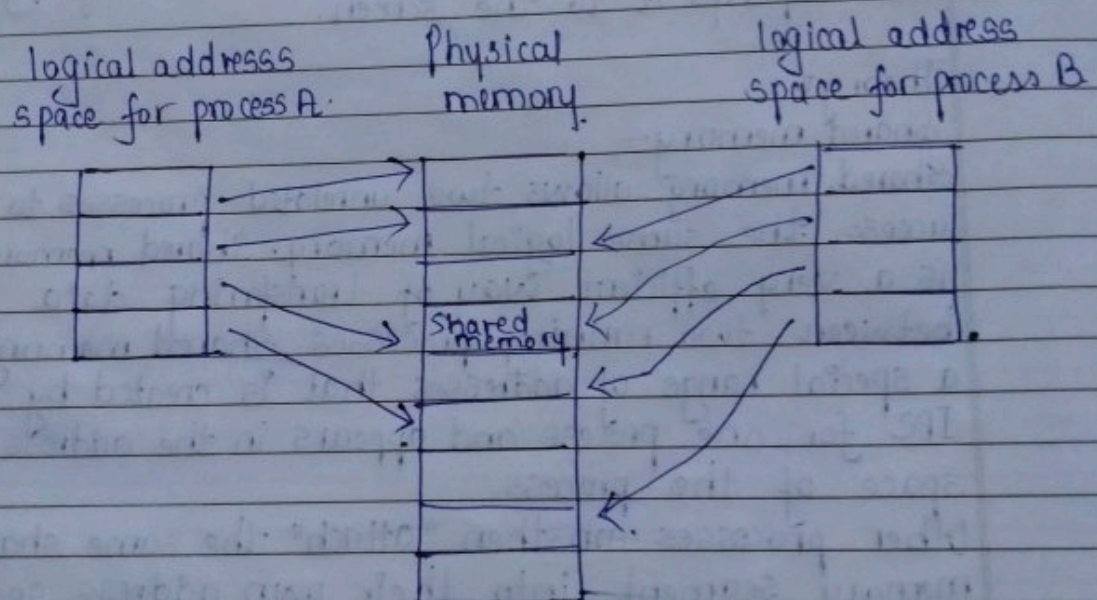 logical addresss
space for process A.
Physical
memory.
logical address
space for process B
shared
memory